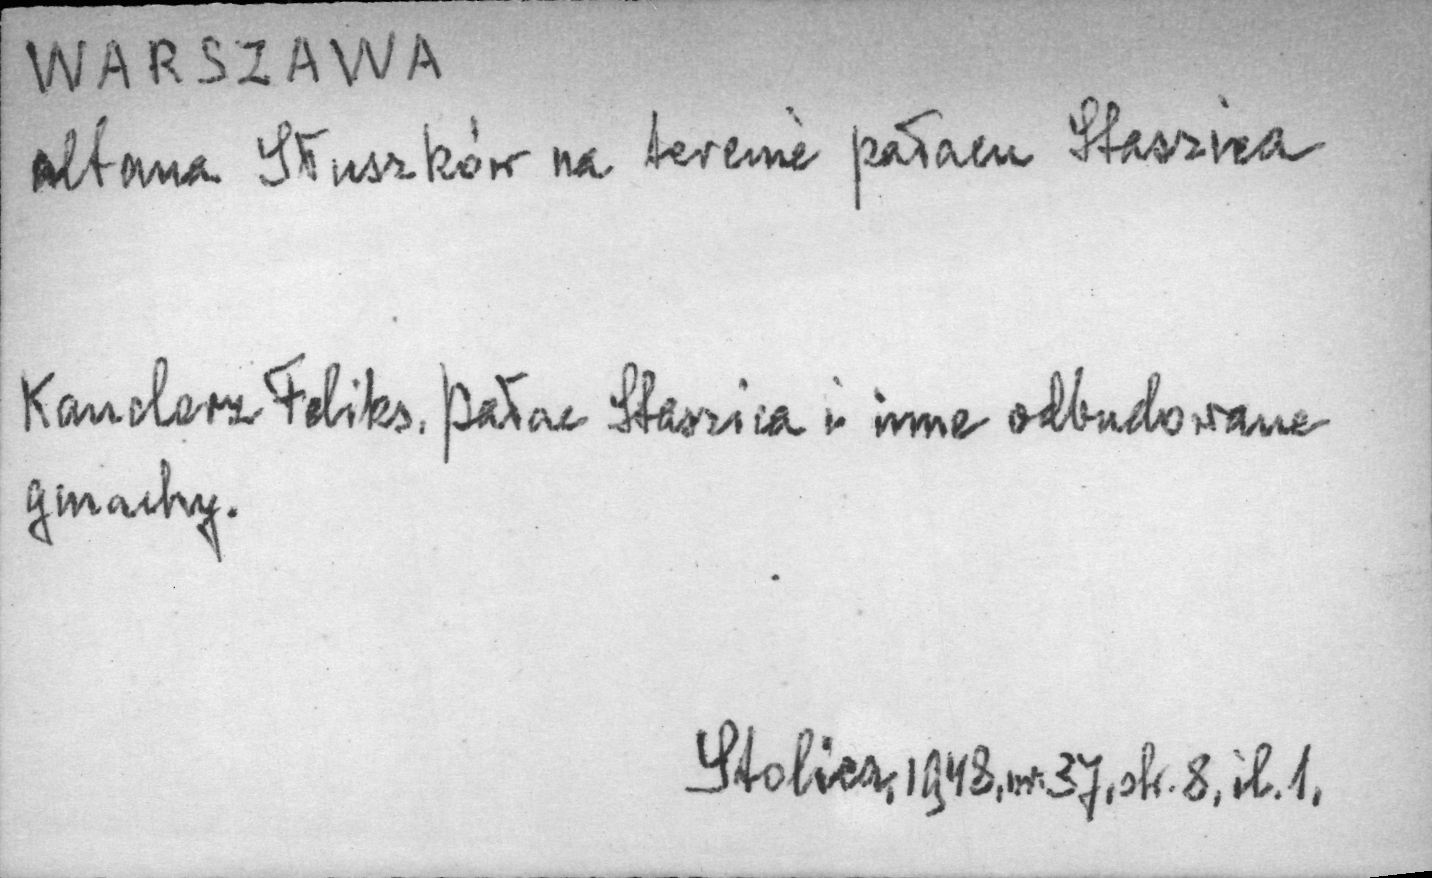 WARSZAWA
altana Słuszków na terenie pałacu Staszica
Kanclerz Feliks. Pałac Staszica i inne odbudowane
gmachy.
Stolica, 1948, nr. 37, str. 8, il. 1.